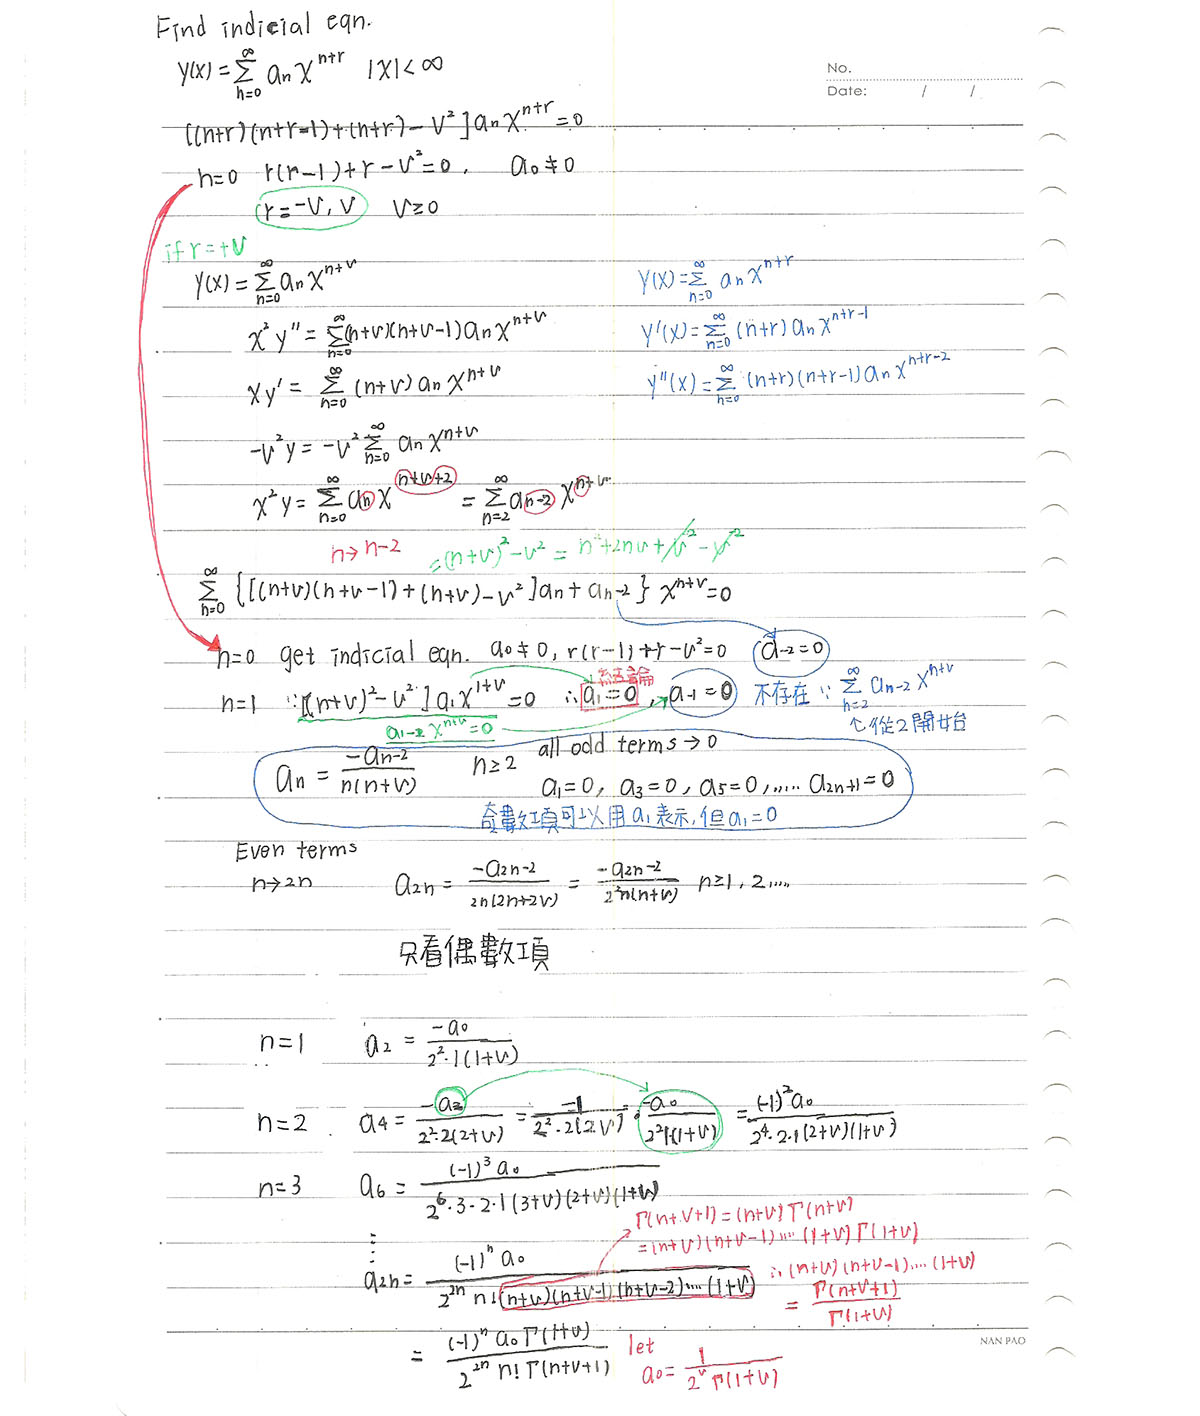 Find indicial eqn.
y(x) = ∑_{n=0}^{∞} a_n x^{n+r}   |x| < ∞
No.
Date:   /   /
[(n+r)(n+r-1)+(n+r)-ν²]a_n x^{n+r} = 0
n=0   r(r-1)+r-ν²=0,   a₀≠0
r=-ν, ν   ν≥0
if r=+ν
y(x) = ∑_{n=0}^{∞} a_n x^{n+ν}
y(x) = ∑_{n=0}^{∞} a_n x^{n+r}
x²y″ = ∑_{n=0}^{∞} (n+ν)(n+ν-1)a_n x^{n+ν}
y′(x) = ∑_{n=0}^{∞} (n+r) a_n x^{n+r-1}
xy′ = ∑_{n=0}^{∞} (n+ν) a_n x^{n+ν}
y″(x) = ∑_{n=0}^{∞} (n+r)(n+r-1) a_n x^{n+r-2}
-ν²y = -ν² ∑_{n=0}^{∞} a_n x^{n+ν}
x²y = ∑_{n=0}^{∞} a_n x^{n+ν+2} = ∑_{n=2}^{∞} a_{n-2} x^{n+ν}
n→n-2   =(n+ν)²-ν² = n²+2nν+ν²-ν²
∑_{n=0}^{∞} {[(n+ν)(n+ν-1)+(n+ν)-ν²]a_n + a_{n-2}} x^{n+ν} = 0
n=0   get indicial eqn.   a₀≠0, r(r-1)+r-ν²=0   a_{-2}=0
結論
n=1   ∵[(n+ν)²-ν²]a₁x^{1+ν}=0   ∴a₁=0, a_{-1}=0   不存在 ∵ ∑_{n=2}^{∞} a_{n-2} x^{n+ν}
a_{1-2} x^{n+ν}=0
↑從2開始
a_n = -a_{n-2} / n(n+ν)   n≥2   all odd terms→0
a₁=0, a₃=0, a₅=0, ..... a_{2n+1}=0
奇數項可以用a₁表示,但a₁=0
Even terms
n→2n   a_{2n} = -a_{2n-2} / 2n(2n+2ν) = -a_{2n-2} / 2²n(n+ν)   n≥1, 2.....
只看偶數項
n=1   a₂ = -a₀ / 2²·1(1+ν)
n=2   a₄ = -a₂ / 2²·2(2+ν) = -1 / 2²·2(2ν) · -a₀ / 2²1(1+ν) = (-1)²a₀ / 2⁴·2·1(2+ν)(1+ν)
n=3   a₆ = (-1)³a₀ / 2⁶·3·2·1(3+ν)(2+ν)(1+ν)
Γ(n+ν+1)=(n+ν)Γ(n+ν)
=(n+ν)(n+ν-1)....(1+ν)Γ(1+ν)
a_{2n} = (-1)ⁿa₀ / 2^{2n} n!(n+ν)(n+ν-1)(n+ν-2)....(1+ν)
∴(n+ν)(n+ν-1)....(1+ν)
= Γ(n+ν+1) / Γ(1+ν)
= (-1)ⁿa₀Γ(1+ν) / 2^{2n} n!Γ(n+ν+1)
let
a₀ = 1 / 2^ν Γ(1+ν)
NAN PAO